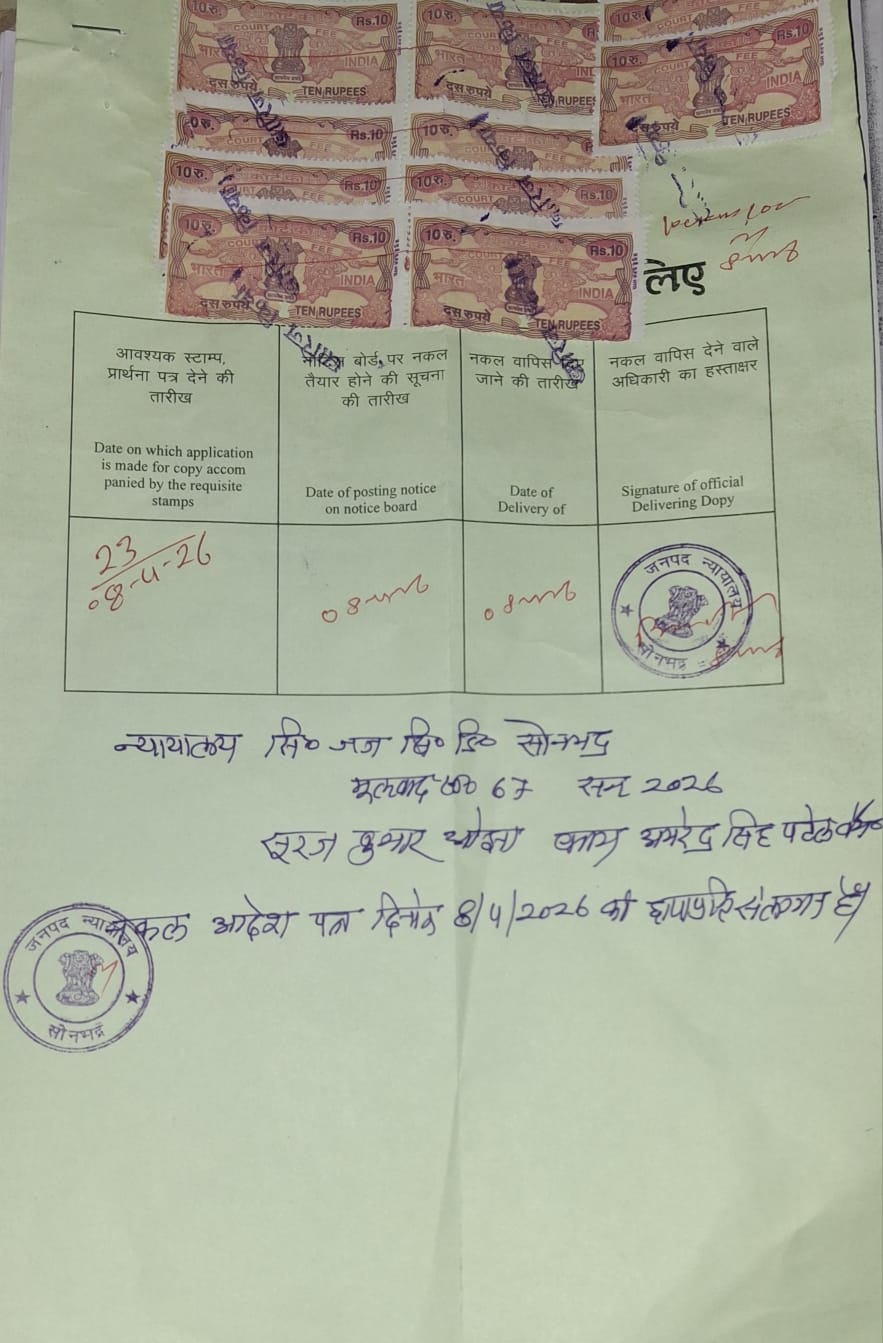 10रु. COURT FEE Rs.10
भारत INDIA
दस रुपये TEN RUPEES
10रु. COURT FEE
भारत
दस रुपये TEN RUPEES
10रु. COURT FEE
10रु. COURT FEE Rs.10
भारत INDIA
दस रुपये TEN RUPEES
0रु. COURT Rs.10
10रु.
10रु. Rs.10
10रु. COURT Rs.10
10रु. COURT FEE Rs.10
भारत INDIA
दस रुपये TEN RUPEES
10रु. COURT FEE Rs.10
भारत INDIA
दस रुपये TEN RUPEES
लिए
आवश्यक स्टाम्प,
प्रार्थना पत्र देने की
तारीख
Date on which application
is made for copy accom
panied by the requisite
stamps
बोर्ड पर नकल
तैयार होने की सूचना
की तारीख
Date of posting notice
on notice board
नकल वापिस
जाने की तारीख
Date of
Delivery of
नकल वापिस देने वाले
अधिकारी का हस्ताक्षर
Signature of official
Delivering Dopy
23
08-4-26
जनपद न्यायालय
सोनभद्र
न्यायालय सि० जज सि० डि० सोनभद्र
मूलवाद सं० 67 सन 2026
सूरज कुमार ओझा बनाम अमरेन्द्र सिंह पटेल
नकल आदेश पत्र दिनांक 8/4/2026 की छायाप्रति संलग्न है।
जनपद न्यायालय
सोनभद्र